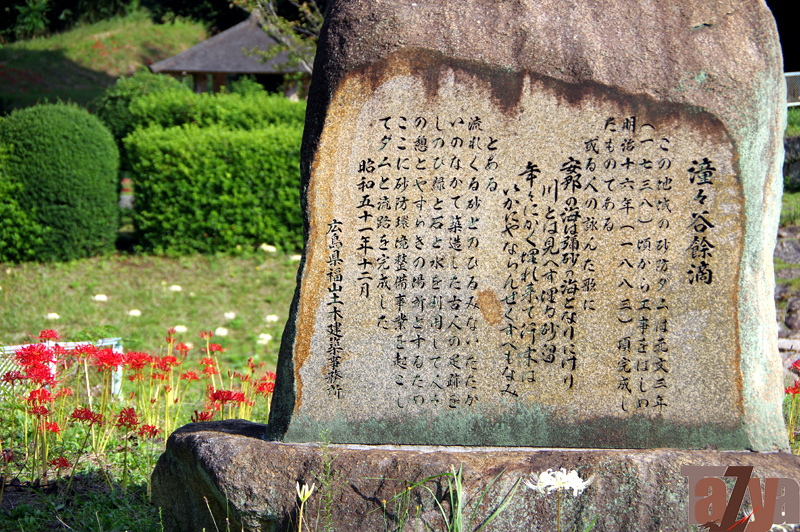 潼々谷餘滴
この地域の砂防ダムは元文三年
(一七三八)頃から工事をはじめ
明治十六年(一八八三)頃完成し
たものである
或る人の詠んだ歌に
安那の海は砂の海となりにけり
川とは見へず埋る砂
年々にかく埋れ来て行末は
いかにやならんせくすべもなみ
とある
流れくる砂とのひるみないたたか
いのなかで築造した古人の足跡を
しのび緑と石と水を利用して人々
の憩とやすらぎの場所とするため
ここに砂防環境整備事業を起こし
てダムと流路を完成した
昭和五十一年十二月
広島県福山土木建築事務所
a7ya